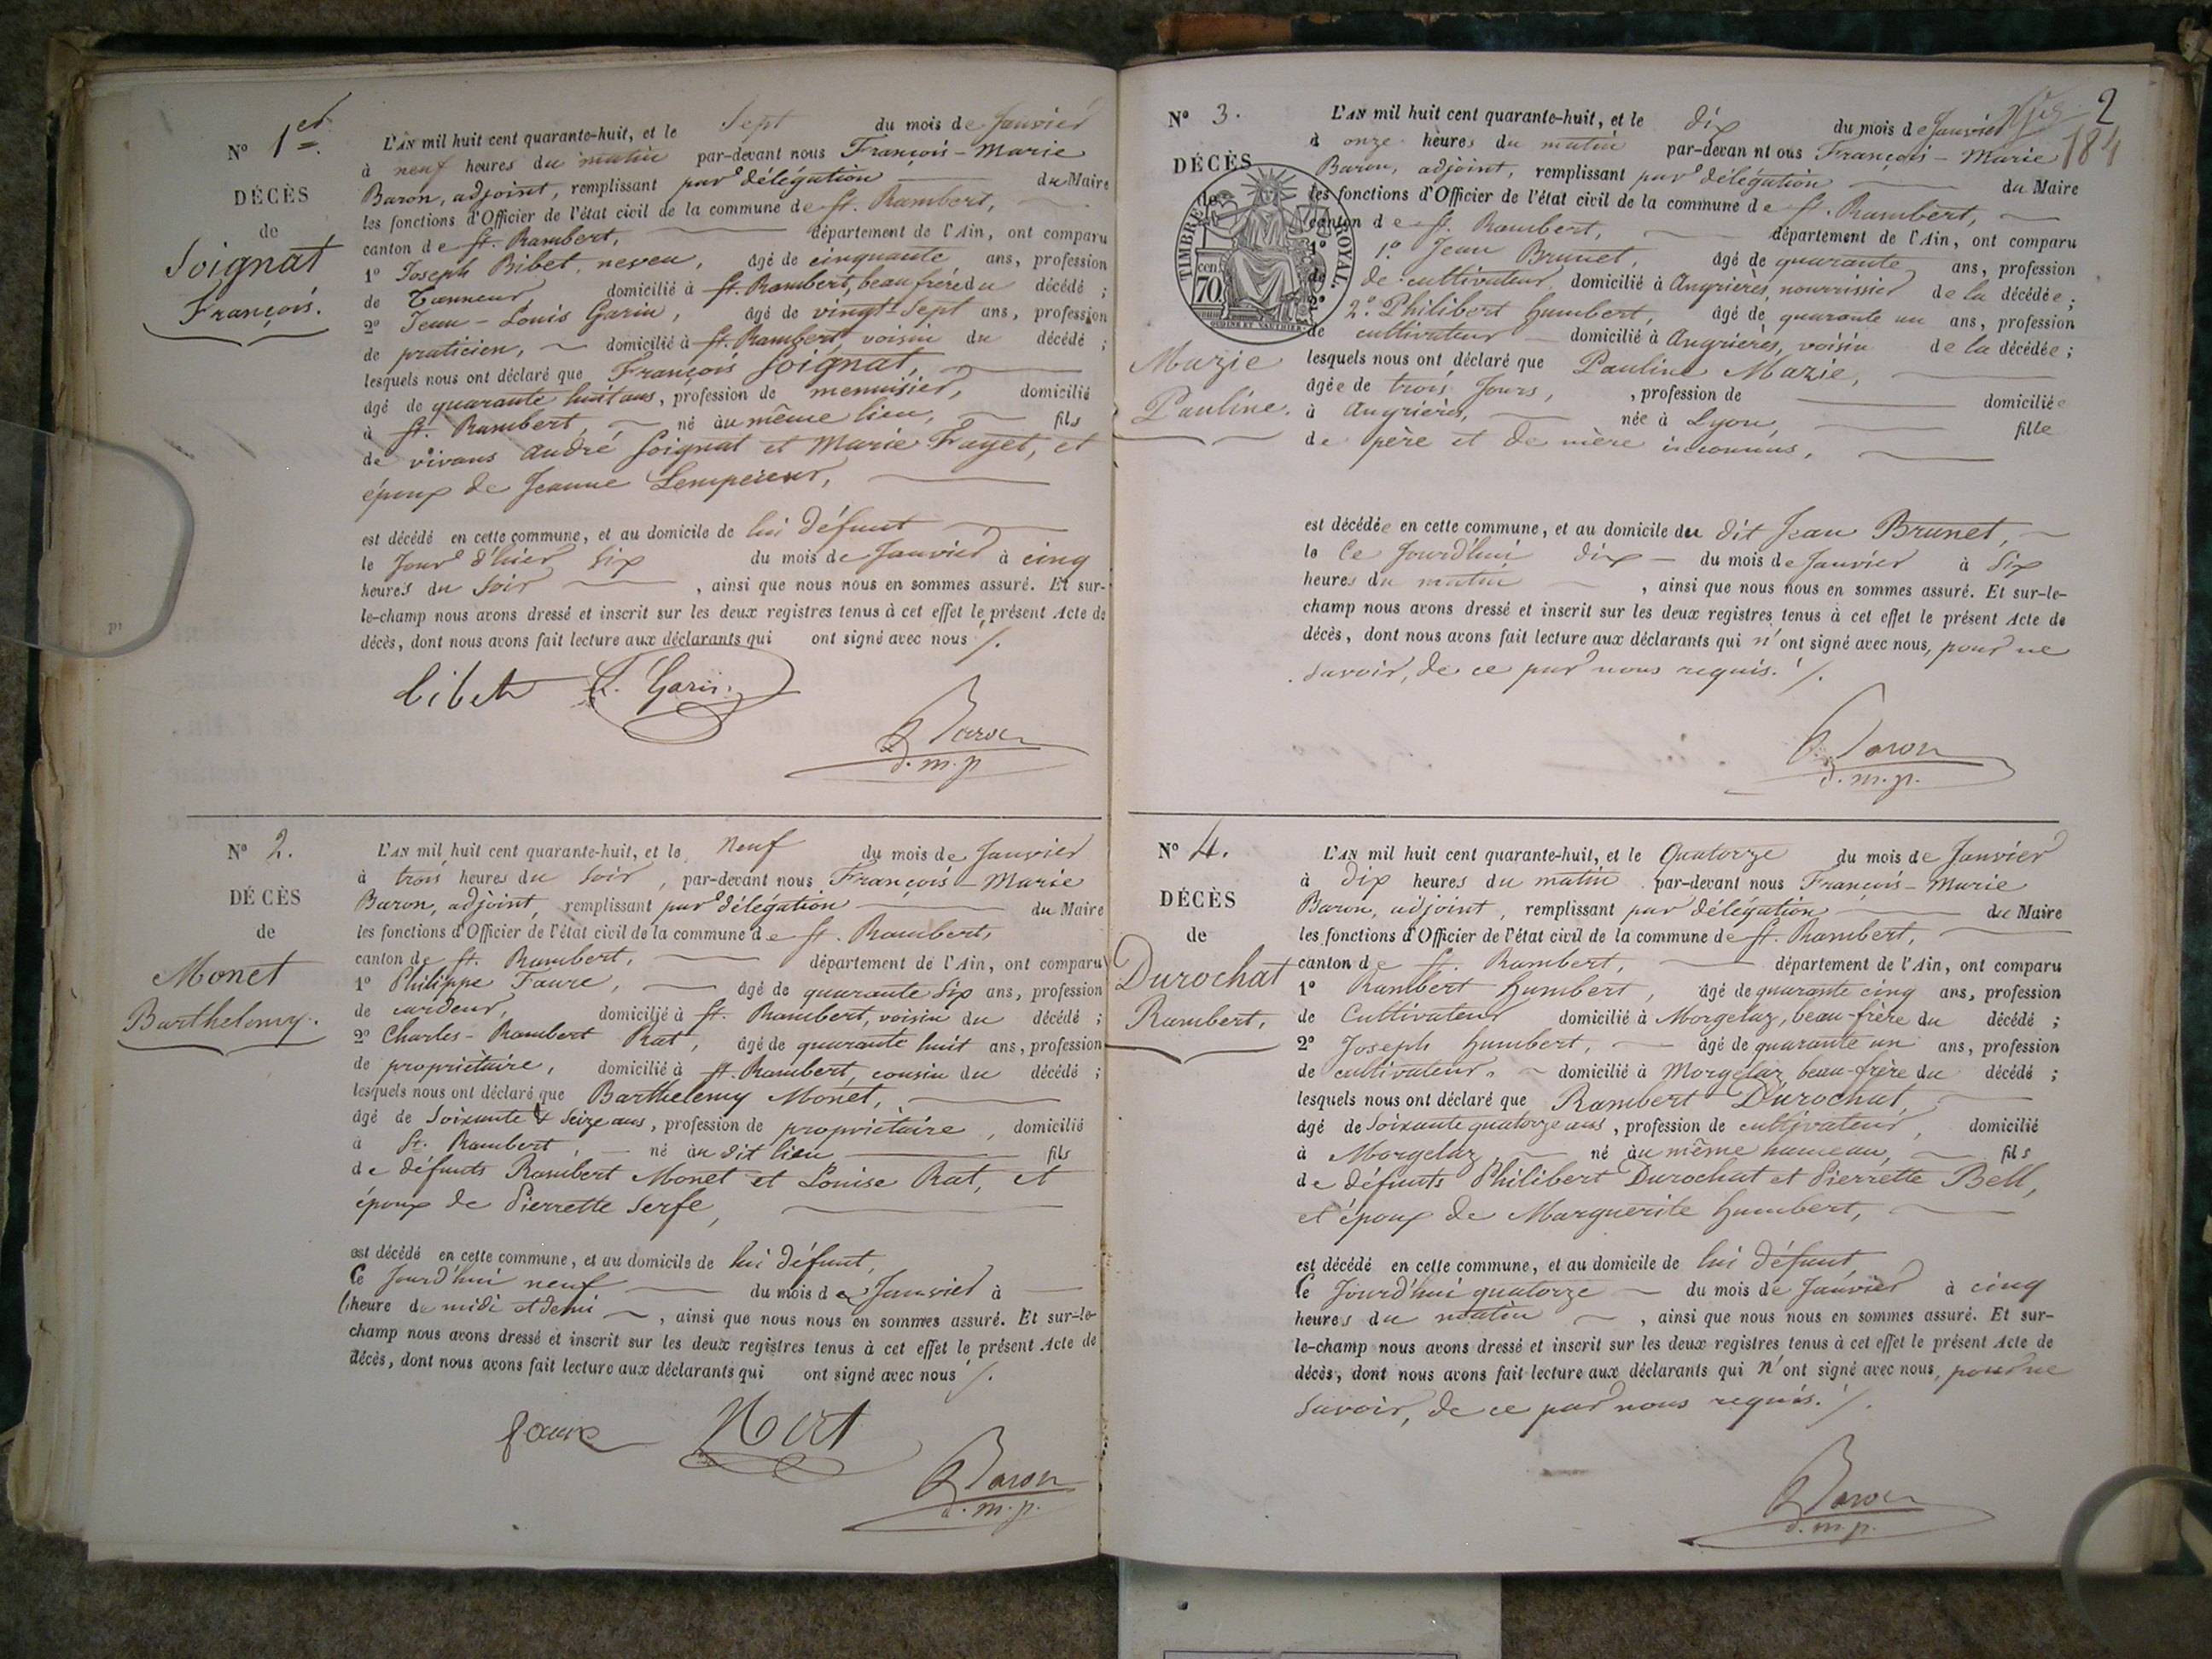 N° 1er
DÉCÈS
de
Soignat
François.
L'AN mil huit cent quarante-huit, et le Sept du mois de Janvier
à neuf heures du matin par-devant nous François-Marie
Baron, adjoint, remplissant par délégation du Maire
les fonctions d'Officier de l'état civil de la commune de St. Rambert,
canton de St. Rambert, département de l'Ain, ont comparu
1° Joseph Bibet, neveu, âgé de cinquante ans, profession
de Tanneur, domicilié à St. Rambert, beau frère du décédé ;
2° Jean-Louis Garin, âgé de vingt-Sept ans, profession
de praticien, domicilié à St. Rambert, voisin du décédé ;
lesquels nous ont déclaré que François Soignat,
âgé de quarante huit ans, profession de menuisier, domicilié
à St. Rambert, né au même lieu, fils
de vivans André Soignat et Marie Fayet, et
époux de Jeanne Lempereur,
est décédé en cette commune, et au domicile de lui défunt
le Jour d'hier Six du mois de Janvier à cinq
heures du Soir , ainsi que nous nous en sommes assuré. Et sur-
le-champ nous avons dressé et inscrit sur les deux registres tenus à cet effet le présent Acte de
décès, dont nous avons fait lecture aux déclarants qui ont signé avec nous ./.
bibet Garin
Baron
d.m.p
N° 2.
DÉCÈS
de
Monet
Barthelemy.
L'AN mil huit cent quarante-huit, et le Neuf du mois de Janvier
à trois heures du Soir, par-devant nous François-Marie
Baron, adjoint, remplissant par délégation du Maire
les fonctions d'Officier de l'état civil de la commune de St. Rambert,
canton de St. Rambert, département de l'Ain, ont comparu
1° Philippe Faure, âgé de quarante Six ans, profession
de cardeur, domicilié à St. Rambert, voisin du décédé ;
2° Charles-Rambert Rat, âgé de quarante huit ans, profession
de propriétaire, domicilié à St. Rambert, cousin du décédé ;
lesquels nous ont déclaré que Barthelemy Monet,
âgé de Soixante & Seize ans, profession de propriétaire, domicilié
à St. Rambert, né au dit lieu fils
de défunts Rambert Monet et Louise Rat, et
époux de Pierrette Serfe,
est décédé en cette commune, et au domicile de lui défunt,
Ce Jourd'hui neuf du mois de Janvier à
heure de midi et demi , ainsi que nous nous en sommes assuré. Et sur-le-
champ nous avons dressé et inscrit sur les deux registres tenus à cet effet le présent Acte de
décès, dont nous avons fait lecture aux déclarants qui ont signé avec nous ./.
faure Rat
Baron
d.m.p.
2
184
N° 3.
DÉCÈS
TIMBRE ROYAL
70 cen
Mazie
Pauline.
L'AN mil huit cent quarante-huit, et le dix du mois de Janvier
à onze heures du matin par-devan nt ous François-Marie
Baron, adjoint, remplissant par délégation du Maire
les fonctions d'Officier de l'état civil de la commune de St. Rambert,
canton de St. Rambert, département de l'Ain, ont comparu
1° 1° Jean Brunet, âgé de quarante ans, profession
de de cultivateur, domicilié à Angrières, nourrissier de la décédée ;
2° 2° Philibert Humbert, âgé de quarante un ans, profession
de cultivateur domicilié à Angrières, voisin de la décédée ;
lesquels nous ont déclaré que Pauline Mazie,
âgée de trois Jours, , profession de domiciliée
à Angrières, née à Lyon, fille
de père et de mère inconnus,
est décédée en cette commune, et au domicile du dit Jean Brunet,
le Ce Jourd'hui dix du mois de Janvier à Six
heures du matin , ainsi que nous nous en sommes assuré. Et sur-le-
champ nous avons dressé et inscrit sur les deux registres tenus à cet effet le présent Acte de
décès, dont nous avons fait lecture aux déclarants qui n'ont signé avec nous, pour ne
Savoir, de ce par nous requis. ./.
Baron
d.m.p.
N° 4.
DÉCÈS
de
Durochat
Rambert,
L'AN mil huit cent quarante-huit, et le Quatorze du mois de Janvier
à dix heures du matin par-devant nous François-Marie
Baron, adjoint, remplissant par délégation du Maire
les fonctions d'Officier de l'état civil de la commune de St. Rambert,
canton de St. Rambert, département de l'Ain, ont comparu
1° Rambert Humbert, âgé de quarante cinq ans, profession
de Cultivateur domicilié à Morgelaz, beau-frère du décédé ;
2° Joseph Humbert, âgé de quarante un ans, profession
de cultivateur, domicilié à Morgelaz, beau-frère du décédé ;
lesquels nous ont déclaré que Rambert Durochat,
âgé de Soixante quatorze ans, profession de cultivateur, domicilié
à Morgelaz, né au même hameau, fils
de défunts Philibert Durochat et Pierrette Bell,
et époux de Marguerite Humbert,
est décédé en cette commune, et au domicile de lui défunt,
Ce Jourd'hui quatorze du mois de Janvier à cinq
heures du matin , ainsi que nous nous en sommes assuré. Et sur-
le-champ nous avons dressé et inscrit sur les deux registres tenus à cet effet le présent Acte de
décès, dont nous avons fait lecture aux déclarants qui n'ont signé avec nous, pour ne
Savoir, de ce par nous requis. ./.
Baron
d.m.p.